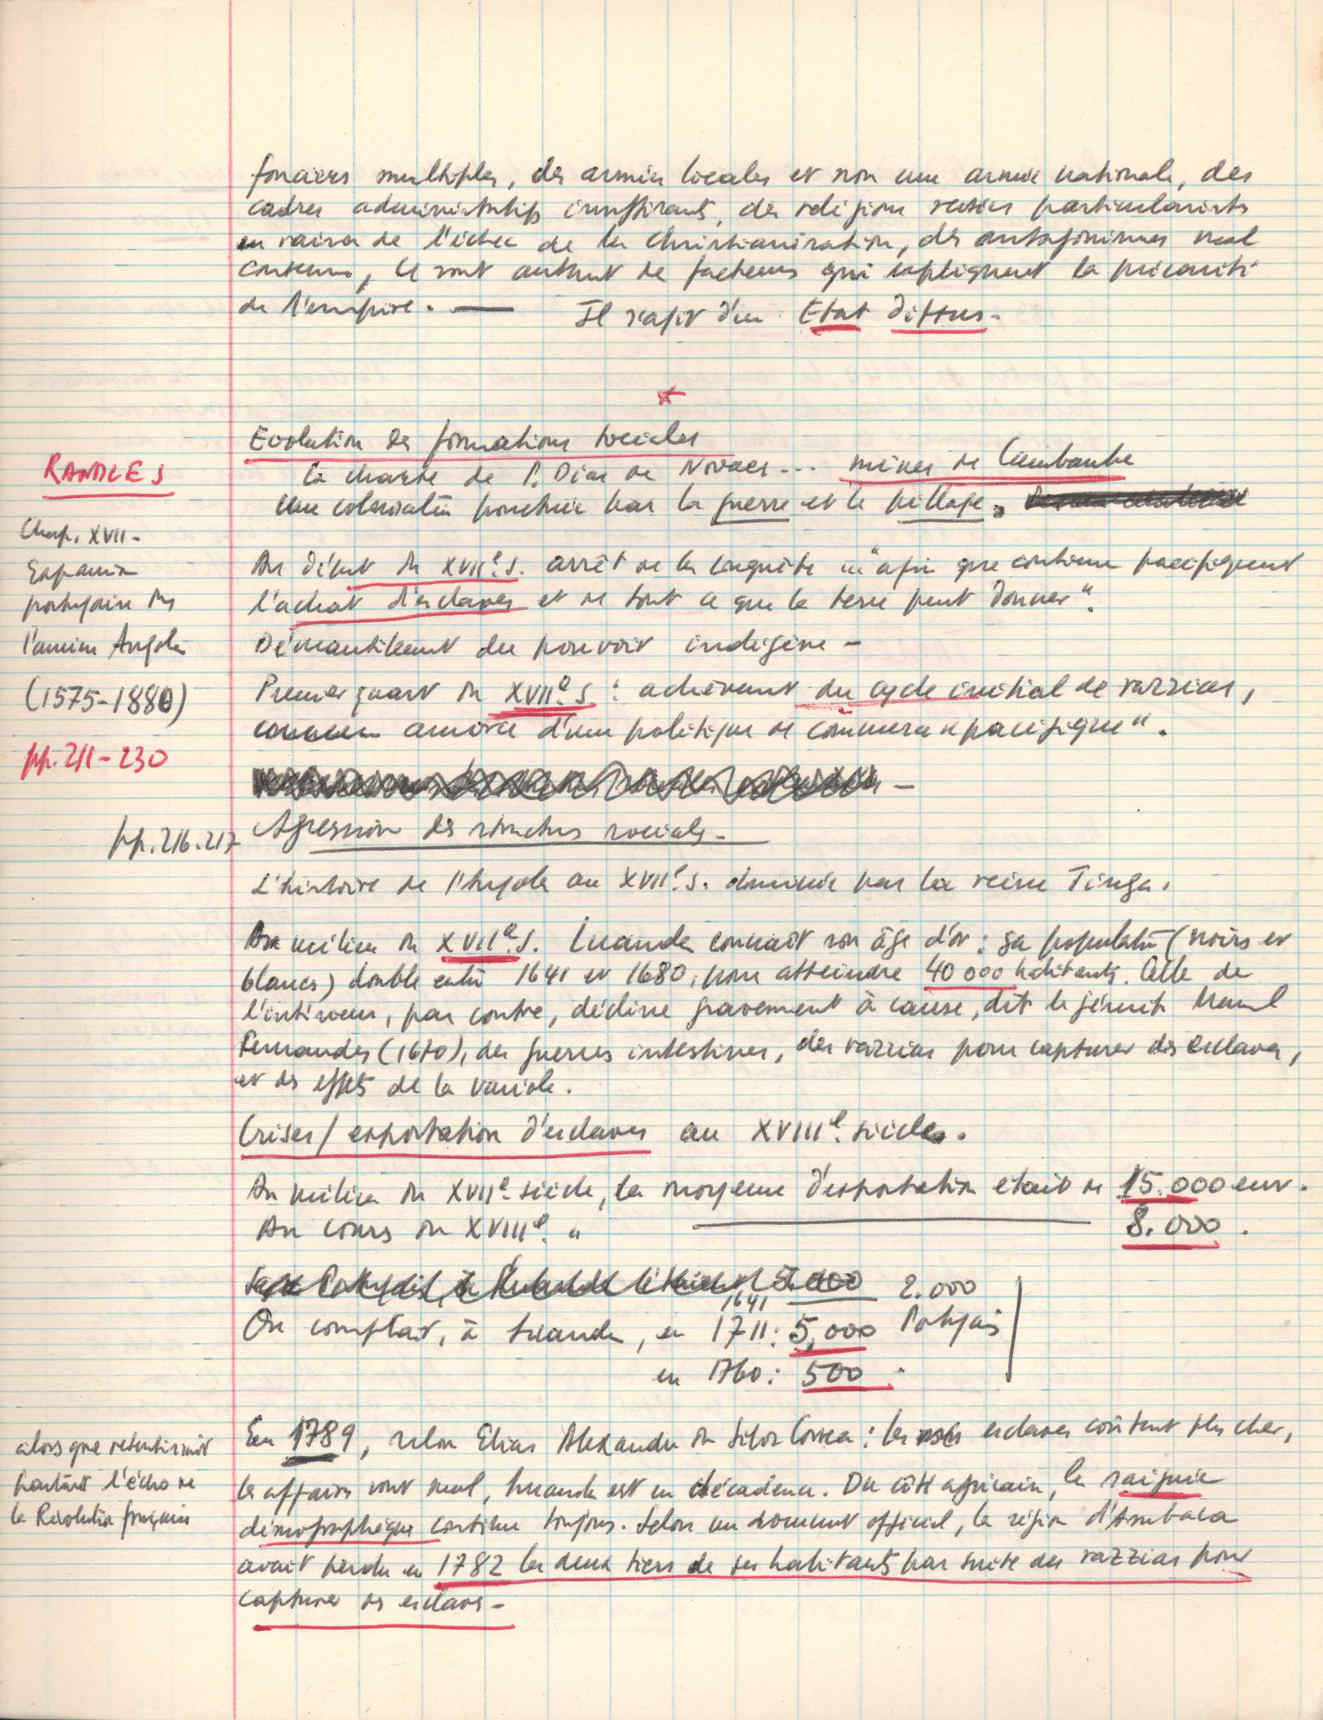 fonciers multiples, des armées locales et non une armée nationale, des
cadres administratifs insuffisants, des religions restées particularistes
en raison de l'échec de la christianisation, des antagonismes mal
contenus, ce sont autant de facteurs qui expliquent la précarité
de l'empire. — Il s'agit d'un Etat diffus.
Evolution des formations sociales
RANDLES
La charte de P. Dias de Novaes... mines de Cambambe
Une colonisation par la guerre et le pillage.
Chap. XVII-
Expansion
portugaise ds
l'ancien Angola
(1575-1880)
pp. 211-230
Au début du XVIIe s. arrêt de la conquête "afin que continue pacifiquement
l'achat d'esclaves et de tout ce que la terre peut donner".
Démantèlement du pouvoir indigène -
Premier quart du XVIIe s : achèvement du cycle initial de razzias,
amorce d'une politique de commerce "pacifique".
pp. 216.217
Agression des structures sociales -
L'histoire de l'Angola au XVIIe s. dominée par la reine Jinga.
Au milieu du XVIIe s. Luanda connaît son âge d'or : sa population (noirs et
blancs) double entre 1641 et 1680, pour atteindre 40 000 habitants. Celle de
l'intérieur, par contre, décline gravement à cause, dit le jésuite Manuel
Fernandes (1670), des guerres intestines, des razzias pour capturer des esclaves,
et des effets de la variole.
Crises / exportation d'esclaves au XVIIIe siècle.
Au milieu du XVIIe siècle, la moyenne d'exportation était de 15.000 env.
Au cours du XVIIIe " 8.000.
1641 2.000
On comptait, à Luanda, en 1711: 5,000 Portugais
en 1760: 500.
alors que retentissait
pourtant l'écho de
la Révolution française
En 1789, selon Elias Alexandre da Silva Correa : les esclaves coûtent plus cher,
les affaires vont mal, Luanda est en décadence. Du côté africain, la saignée
démographique continue toujours. Selon un document officiel, la région d'Ambaca
avait perdu en 1782 les deux tiers de ses habitants par suite des razzias pour
capturer des esclaves -